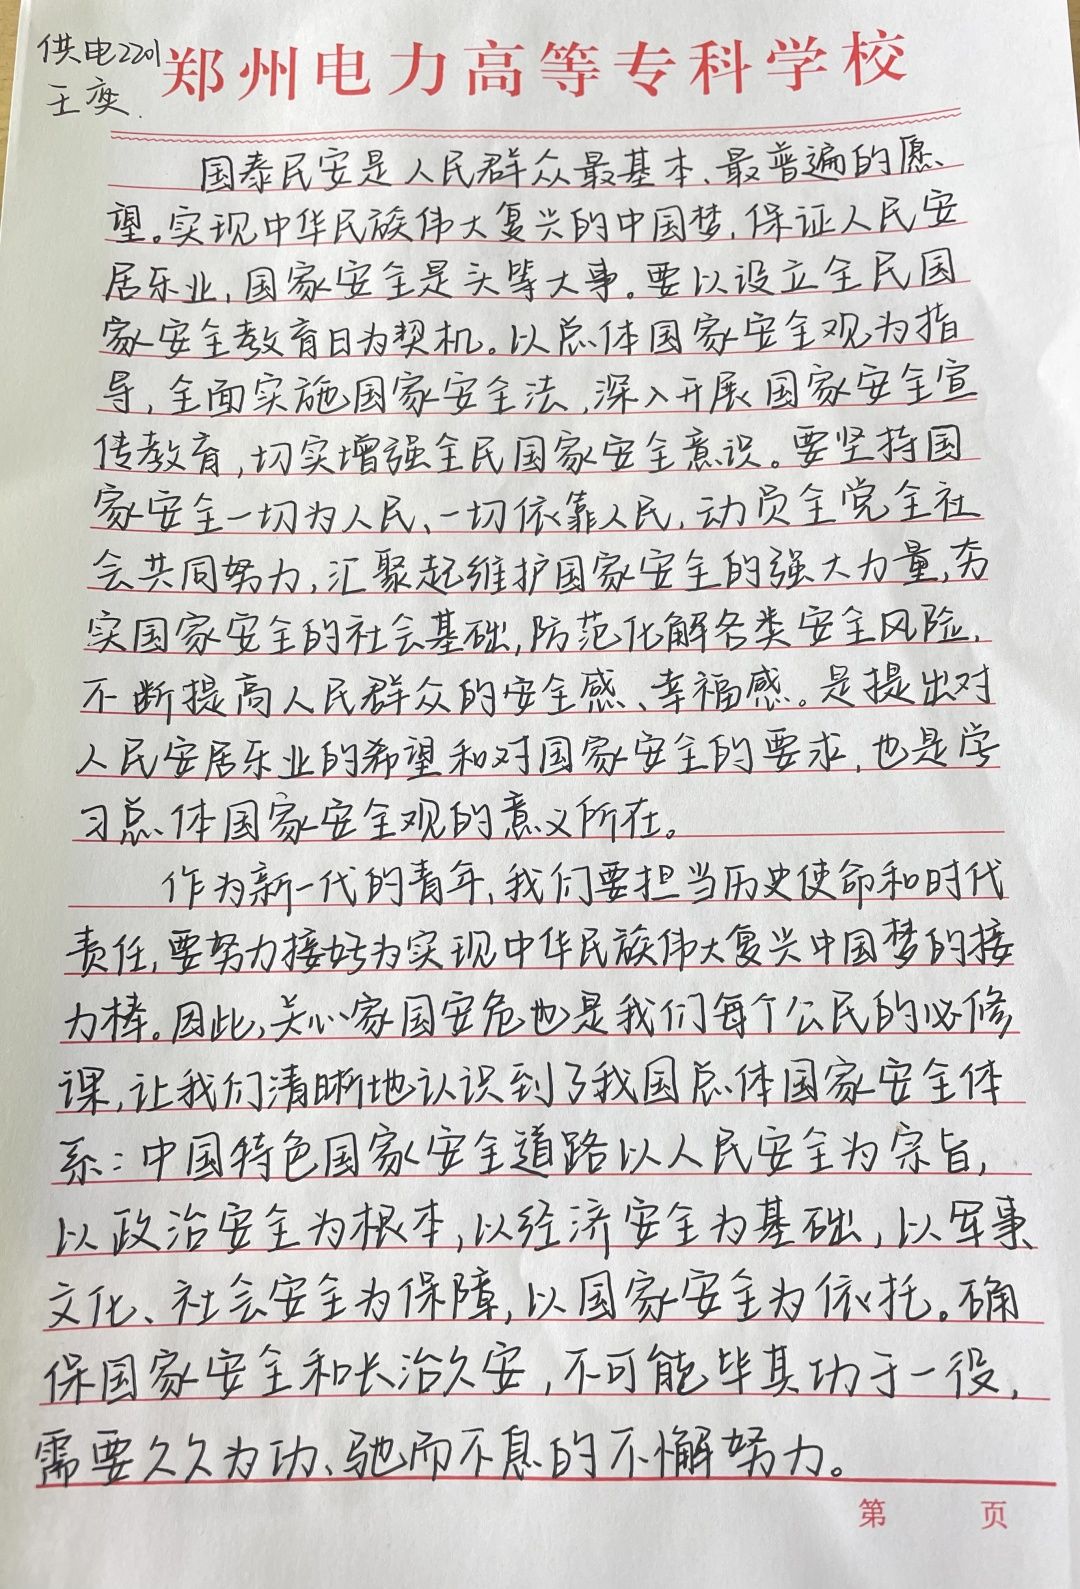 供电2201
王奕.
郑州电力高等专科学校
国泰民安是人民群众最基本、最普遍的愿
望。实现中华民族伟大复兴的中国梦,保证人民安
居乐业,国家安全是头等大事。要以设立全民国
家安全教育日为契机。以总体国家安全观为指
导,全面实施国家安全法,深入开展国家安全宣
传教育,切实增强全民国家安全意识。要坚持国
家安全一切为人民、一切依靠人民,动员全党全社
会共同努力,汇聚起维护国家安全的强大力量,夯
实国家安全的社会基础,防范化解各类安全风险,
不断提高人民群众的安全感、幸福感。是提出对
人民安居乐业的希望和对国家安全的要求,也是学
习总体国家安全观的意义所在。
作为新一代的青年,我们要担当历史使命和时代
责任,要努力接好为实现中华民族伟大复兴中国梦的接
力棒。因此,关心家国安危也是我们每个公民的必修
课,让我们清晰地认识到了我国总体国家安全体
系:中国特色国家安全道路以人民安全为宗旨,
以政治安全为根本,以经济安全为基础,以军事
文化、社会安全为保障,以国家安全为依托。确
保国家安全和长治久安,不可能毕其功于一役,
需要久久为功、驰而不息的不懈努力。
第 页